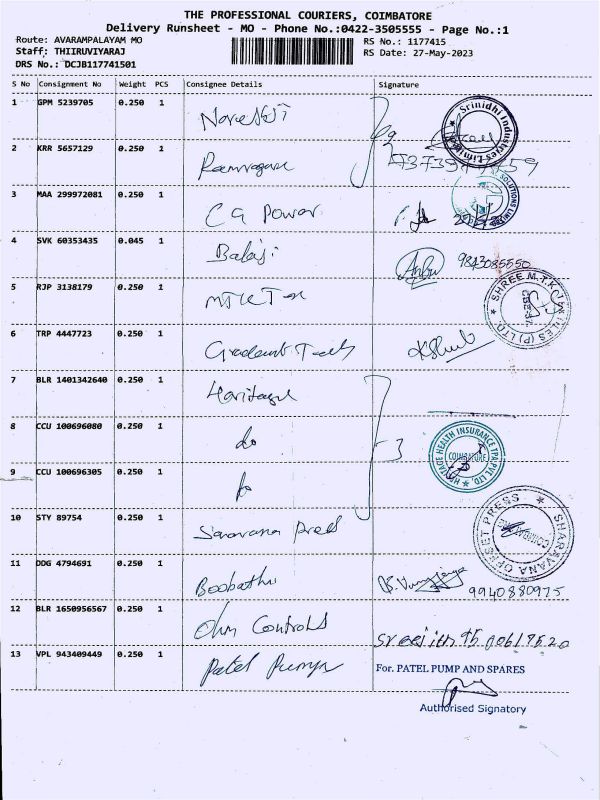 THE PROFESSIONAL COURIERS, COIMBATORE
Delivery Runsheet - MO - Phone No.:0422-3505555 - Page No.:1
Route: AVARAMPALAYAM MO RS No.: 1177415
Staff: THIIRUVIYARAJ RS Date: 27-May-2023
DRS No.: DCJB117741501
S No Consignment No Weight PCS Consignee Details Signature
1 GPM 5239705 0.250 1 Srinidhi Industries Limited
2 KRR 5657129 0.250 1
3 MAA 299972081 0.250 1 CG Power SOLUTIONS LIMITED
4 SVK 60353435 0.045 1 Balaji Anbu 9843085550
5 RJP 3138179 0.250 1 SHREE M.T.K. (P) LTD.
6 TRP 4447723 0.250 1
7 BLR 1401342640 0.250 1 Heritage
8 CCU 100696080 0.250 1 do 3 HERITAGE HEALTH INSURANCE TPA PVT. LTD. COIMBATORE
9 CCU 100696305 0.250 1
10 STY 89754 0.250 1 Saravana Press SHARAVANA OFFSET PRESS
11 DDG 4794691 0.250 1 Boobathi 9940880975
12 BLR 1650956567 0.250 1 Ohm Controls
13 VPL 943409449 0.250 1 Patel Pumps For. PATEL PUMP AND SPARES
Authorised Signatory